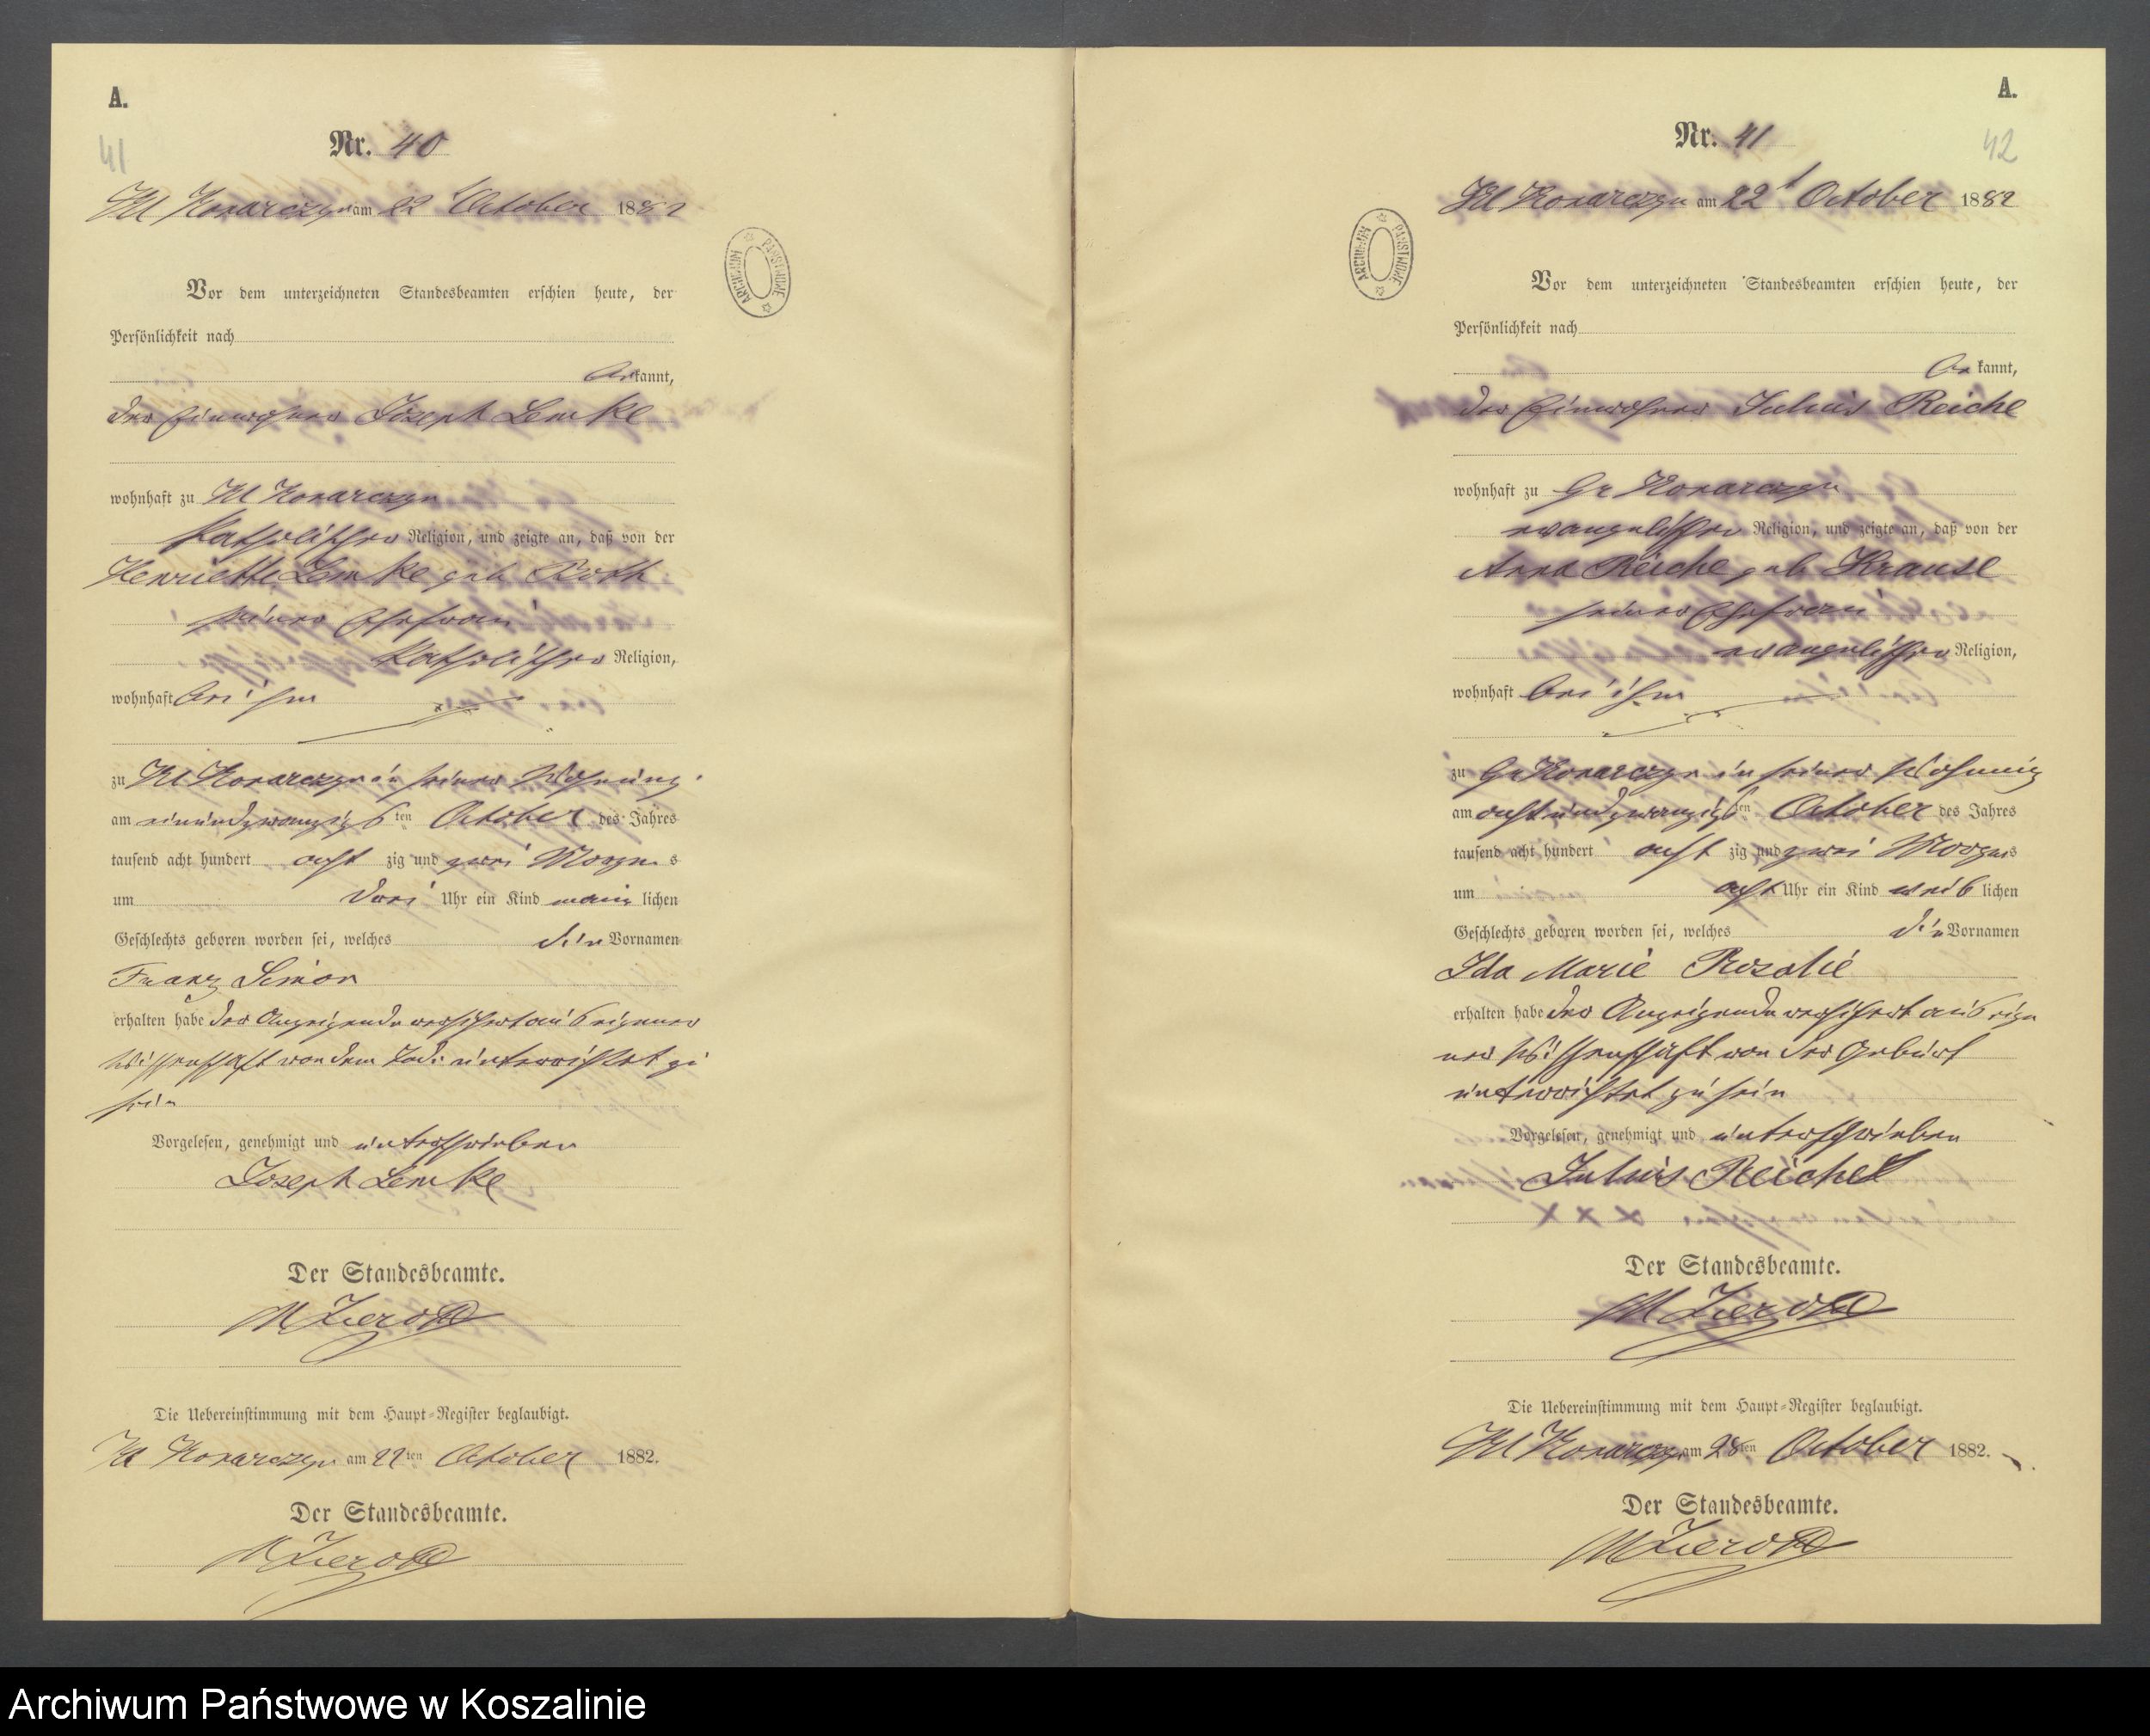 A.
41
Nr. 40
Kl Konarczyn am 22 t October 1882
Vor dem unterzeichneten Standesbeamten erschien heute, der
Persönlichkeit nach
bekannt,
der Einwohner Joseph Lemke
wohnhaft zu Kl Konarczyn
katholischer Religion, und zeigte an, daß von der
Henriette Lemke geb Roth
seiner Ehefrau
katholischer Religion,
wohnhaft bei ihm
zu Kl Konarczyn in seiner Wohnung
am einundzwanzigsten October des Jahres
tausend acht hundert acht zig und zwei Morgens
um drei Uhr ein Kind männlichen
Geschlechts geboren worden sei, welches die Vornamen
Franz Simon
erhalten habe der Anzeigende versichert aus eigener
Wissenschaft von dem Tode unterrichtet zu
sein
Vorgelesen, genehmigt und unterschrieben
Joseph Lemke
Der Standesbeamte.
Die Uebereinstimmung mit dem Haupt-Register beglaubigt.
Kl Konarczyn am 22ten October 1882.
Der Standesbeamte.
A.
42
Nr. 41
Kl Konarczyn am 22 t October 1882
Vor dem unterzeichneten Standesbeamten erschien heute, der
Persönlichkeit nach
be kannt,
der Einwohner Julius Reiche
wohnhaft zu Gr Konarczyn
evangelischer Religion, und zeigte an, daß von der
Anna Reiche geb Krause
seiner Ehefrau
evangelischer Religion,
wohnhaft bei ihm
zu Gr Konarczyn in seiner Wohnung
am achtundzwanzigsten October des Jahres
tausend acht hundert acht zig und zwei Morgens
um acht Uhr ein Kind weib lichen
Geschlechts geboren worden sei, welches die Vornamen
Ida Marie Rosalie
erhalten habe der Anzeigende versichert aus eige
ner Wissenschaft von der Geburt
unterrichtet zu sein
Vorgelesen, genehmigt und unterschrieben
Julius Reichel
Der Standesbeamte.
Die Uebereinstimmung mit dem Haupt-Register beglaubigt.
Kl Konarczyn am 28ten October 1882.
Der Standesbeamte.
ARCHIWUM PAŃSTWOWE
ARCHIWUM PAŃSTWOWE
Archiwum Państwowe w Koszalinie